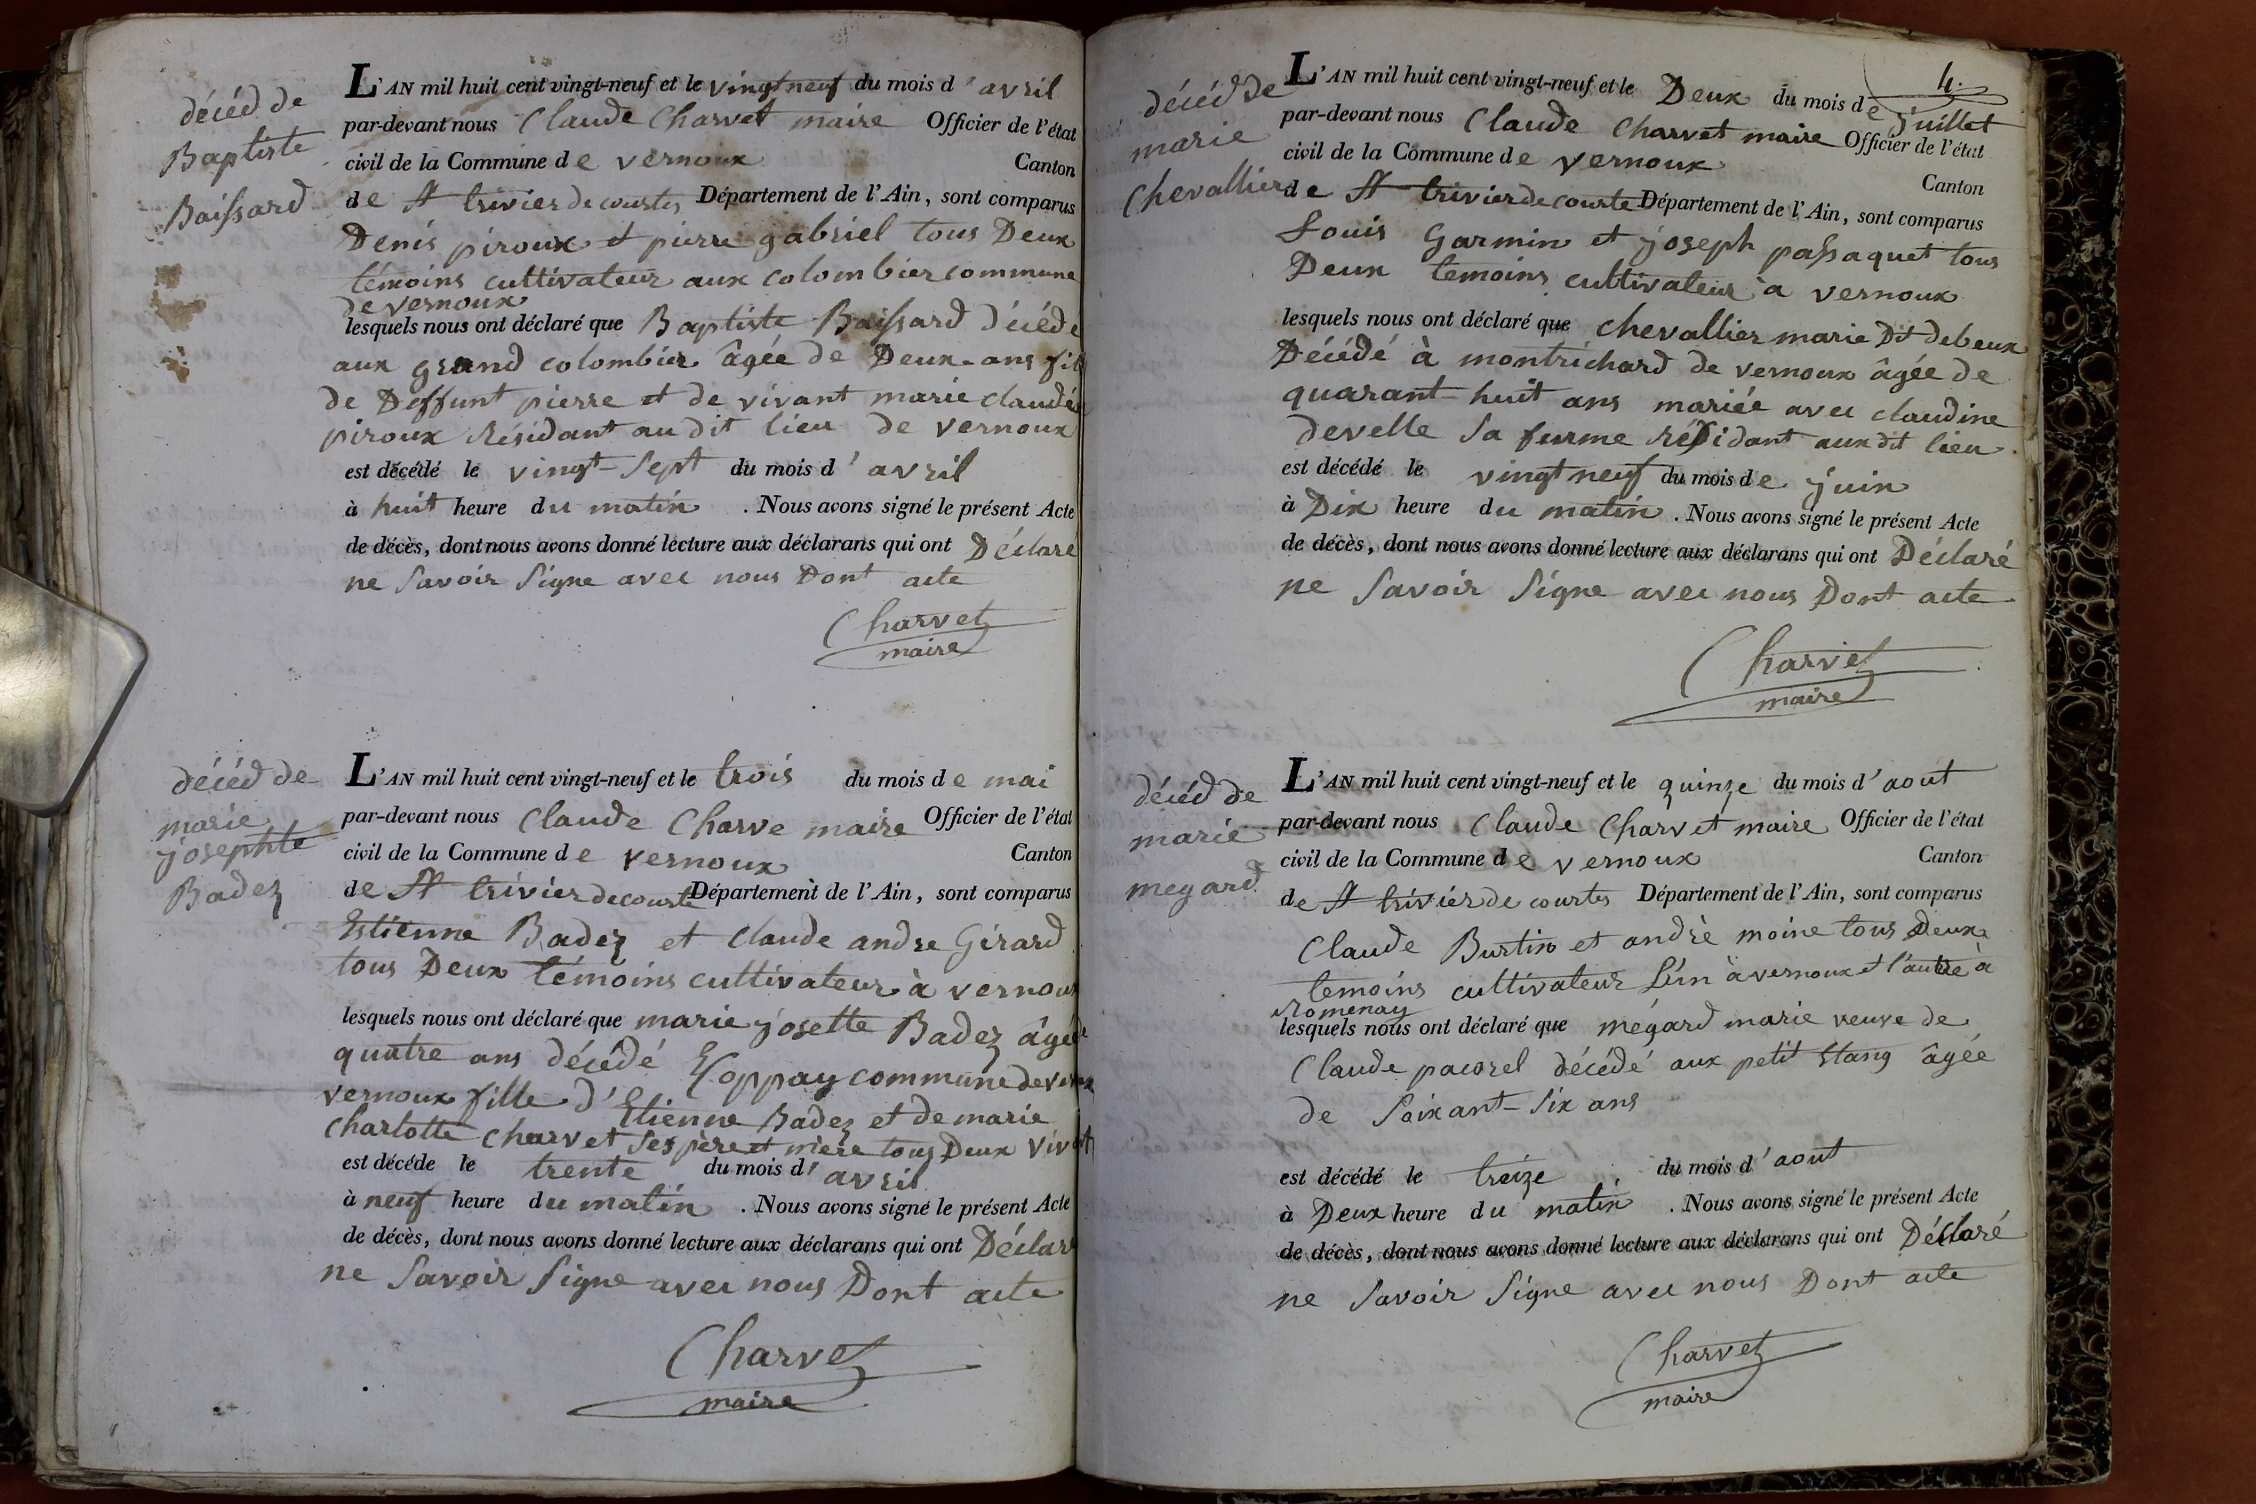 décéd de
Baptiste
Baissard
L'AN mil huit cent vingt-neuf et le vingt neuf du mois d'avril
par-devant nous Claude Charvet maire Officier de l'état
civil de la Commune de vernoux Canton
de St trivier de courtes Département de l'Ain, sont comparus
Denis piroux et pierre gabriel tous Deux
témoins cultivateur aux colombier commune
de vernoux
lesquels nous ont déclaré que Baptiste Baissard décéde
aux grand colombier âgée de Deux ans fils
de Deffunt pierre et de vivant marie claudie
piroux Résidant au dit lieu de vernoux
est décédé le vingt-Sept du mois d'avril
à huit heure du matin . Nous avons signé le présent Acte
de décès, dont nous avons donné lecture aux déclarans qui ont Déclaré
ne Savoir Signe avec nous Dont acte
Charvet
maire
décéd de
marie
josephte
Badez
L'AN mil huit cent vingt-neuf et le trois du mois de mai
par-devant nous Claude Charve maire Officier de l'état
civil de la Commune de vernoux Canton
de St trivier de courte Département de l'Ain, sont comparus
Estienne Badez et Claude andre Girard
tous Deux témoins cultivateur à vernoux
lesquels nous ont déclaré que marie josette Badez âgée de
quatre ans décédé commune de
vernoux fille d'Etienne Badez et de marie
Charlotte Charvet Ses père et mère tous Deux vivant
est décéde le trente du mois d'avril
à neuf heure du matin . Nous avons signé le présent Acte
de décès, dont nous avons donné lecture aux déclarans qui ont Déclaré
ne Savoir Signe avec nous Dont acte
Charvet
maire
4.
décéd de
marie
Chevallier
L'AN mil huit cent vingt-neuf et le Deux du mois de juillet
par-devant nous Claude Charvet maire Officier de l'état
civil de la Commune de vernoux Canton
de St trivier de courte Département de l'Ain, sont comparus
Louis Garmin et joseph passaquet tous
Deux temoins cultivateur à vernoux
lesquels nous ont déclaré que chevallier marie Dt debeux
Décédé à montrichard de vernoux âgée de
quarant-huit ans mariée avec claudine
develle Sa furme résidant aux dt lieu
est décédé le vingt neuf du mois de juin
à Dix heure du matin . Nous avons signé le présent Acte
de décès, dont nous avons donné lecture aux déclarans qui ont Déclaré
ne Savoir Signe avec nous Dont acte
Charvet
maire
décéd de
marie
megard
L'AN mil huit cent vingt-neuf et le quinze du mois d'aout
par-devant nous Claude Charvet maire Officier de l'état
civil de la Commune de vernoux Canton
de St trivier de courtes Département de l'Ain, sont comparus
Claude Burtin et andrè moine tous Deux
temoins cultivateur L'un à vernoux et l'autre à
Romenay
lesquels nous ont déclaré que mégard marie veuve de
Claude pacorel décédé aux petit Etang âgée
de Soixant-Six ans
est décédé le treize du mois d'aout
à Deux heure du matin . Nous avons signé le présent Acte
de décès, dont nous avons donné lecture aux déclarans qui ont Déclaré
ne Savoir Signe avec nous Dont acte
Charvet
maire